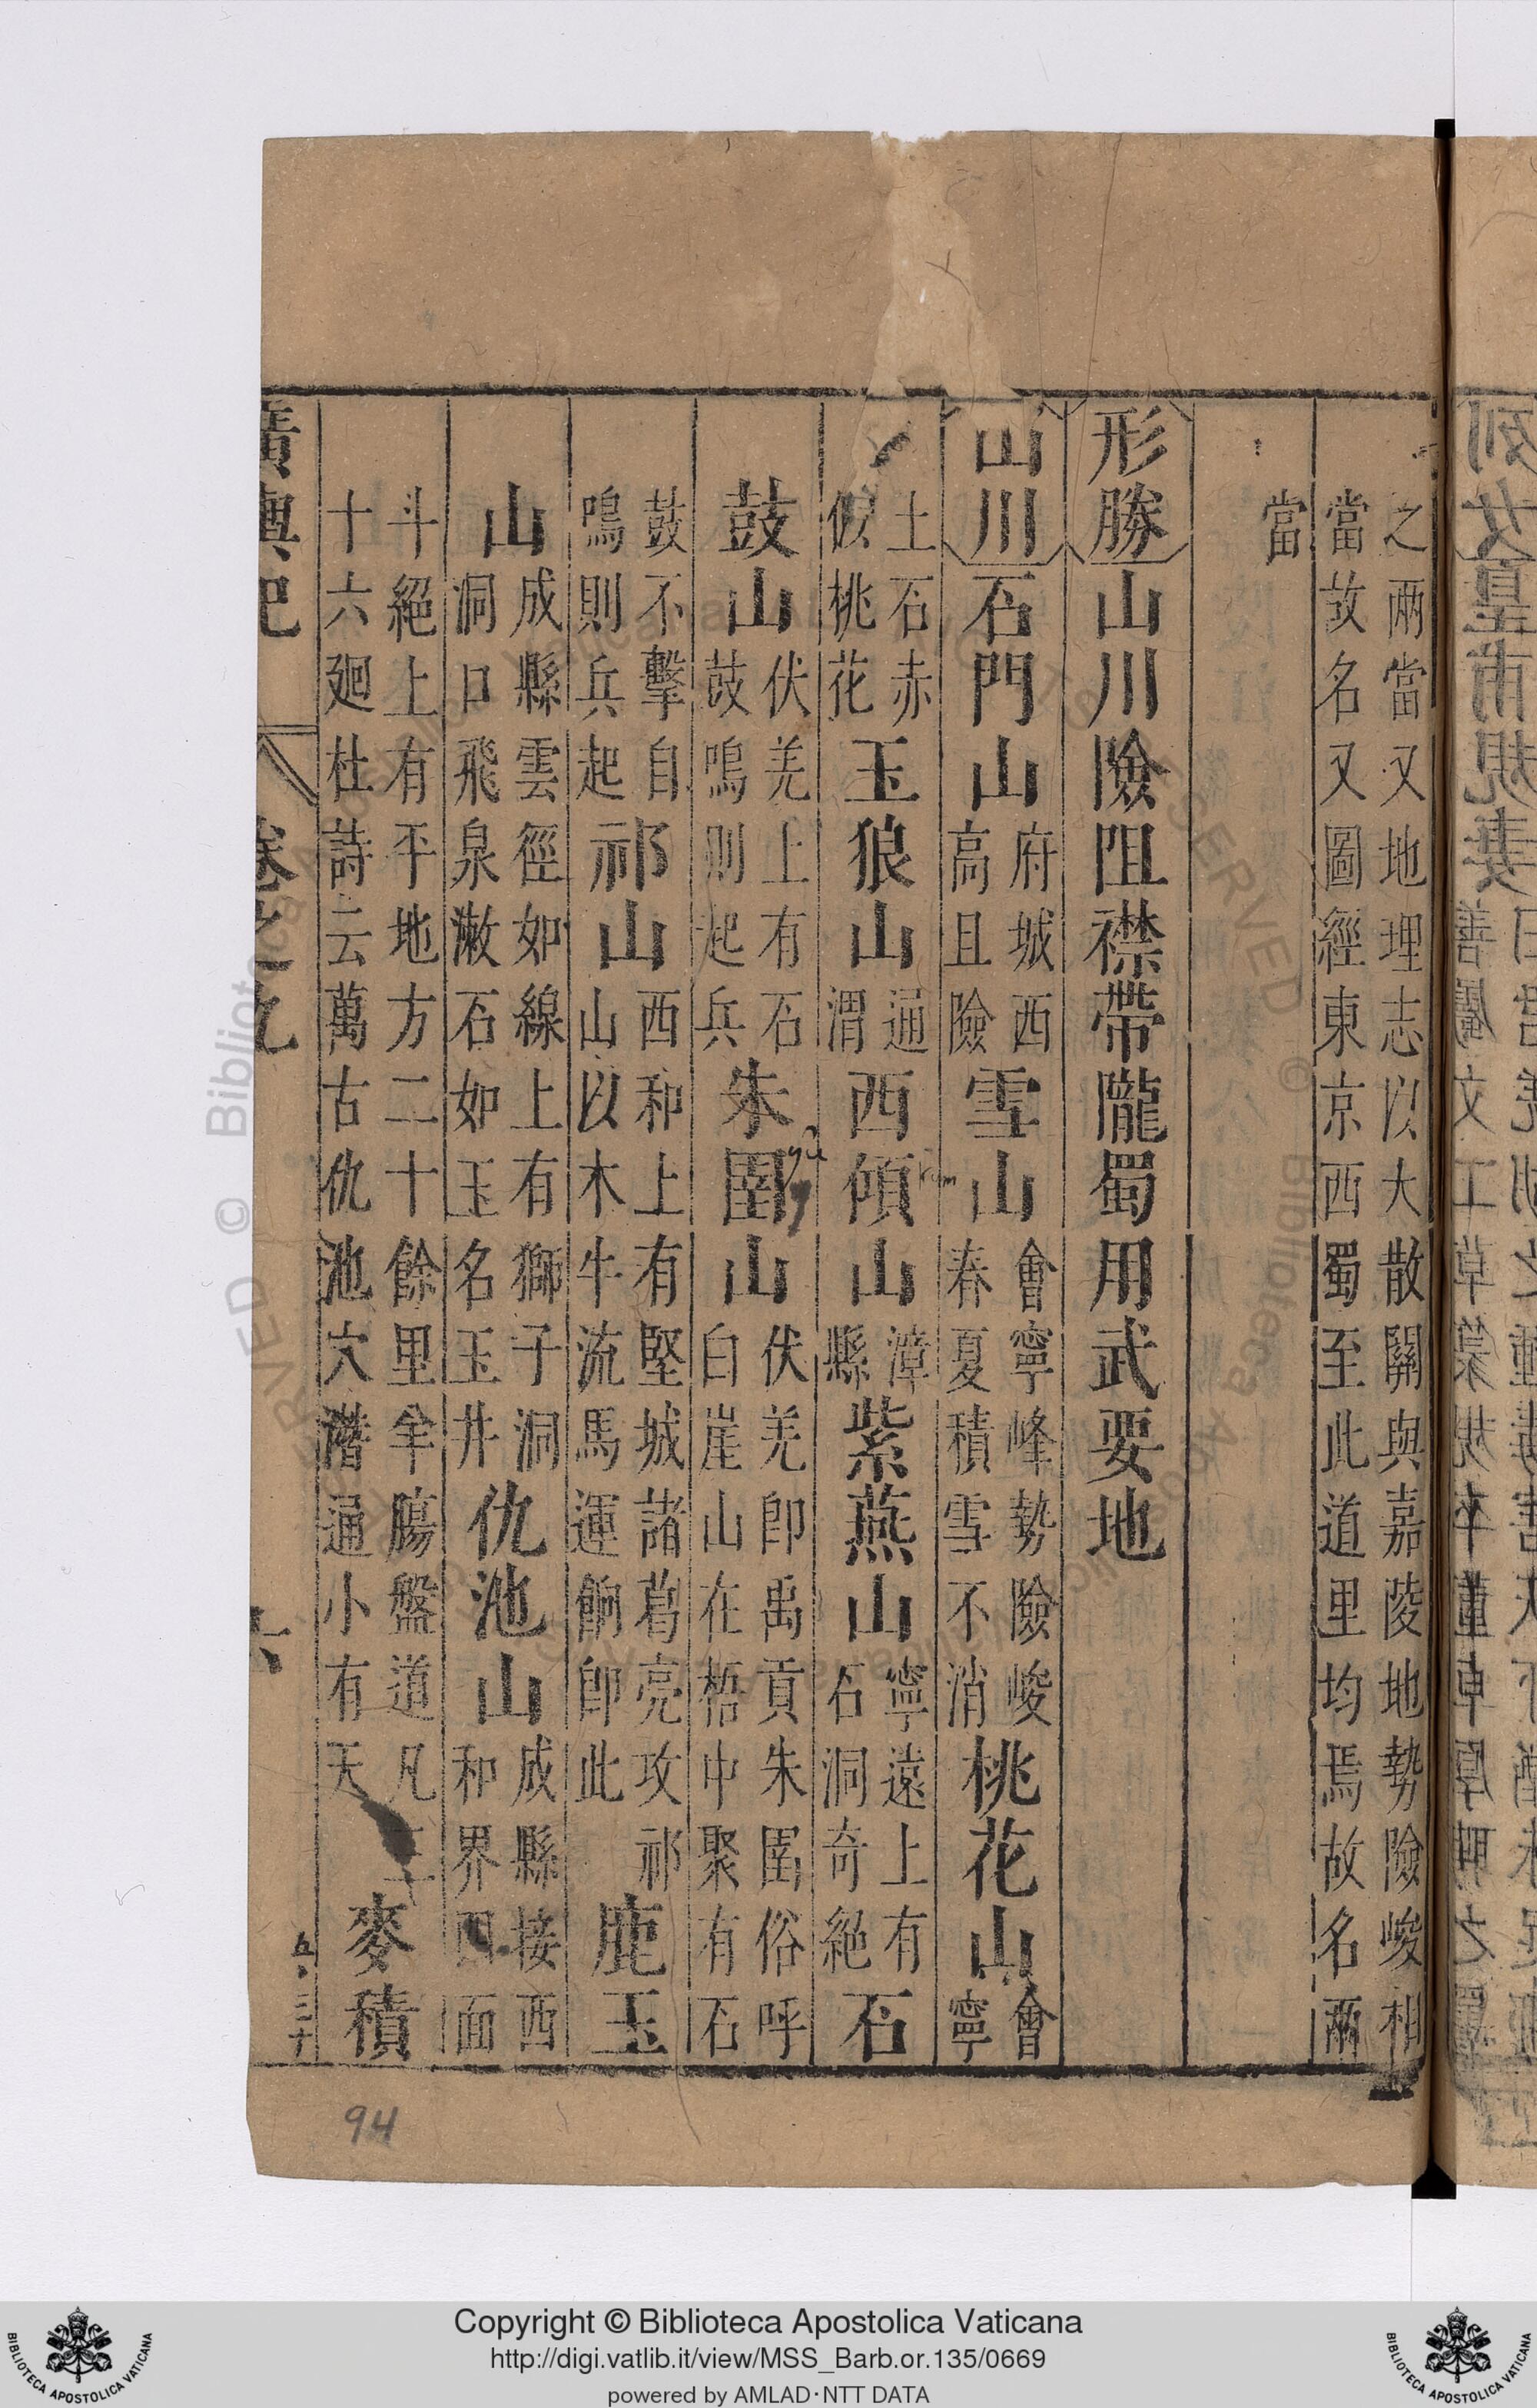 之兩當又地理志以大散關與嘉陵地勢險峻相
當故名又圖經東京西蜀至此道里均焉故名兩
當
形勝山川險阻襟帶隴蜀用武要地
山川石門山府城西高且險雪山會寧峰勢險峻春夏積雪不消桃花山會寧
土石赤假桃花玉狼山通渭西傾山漳縣紫燕山寧遠上有石洞奇絕石
鼓山伏羌上有石鼓鳴則起兵朱圉山伏羌卽禹貢朱圉俗呼白崖山在梧中聚有石
鼓不擊自鳴則兵起祁山西和上有堅城諸葛亮攻祁山以木牛流馬運餉卽此鹿玉
山成縣雲徑如線上有獅子洞洞口飛泉漱石如玉名玉井仇池山成縣接西和界四面
斗絕上有平地方二十餘里羊腸盤道凡三十六廻杜詩云萬古仇池穴潛通小有天麥積
廣輿記
卷之九
六
五・三十
94
Copyright © Biblioteca Apostolica Vaticana
http://digi.vatlib.it/view/MSS_Barb.or.135/0669
powered by AMLAD·NTT DATA
BIBLIOTECA APOSTOLICA VATICANA
BIBLIOTECA APOSTOLICA VATICANA